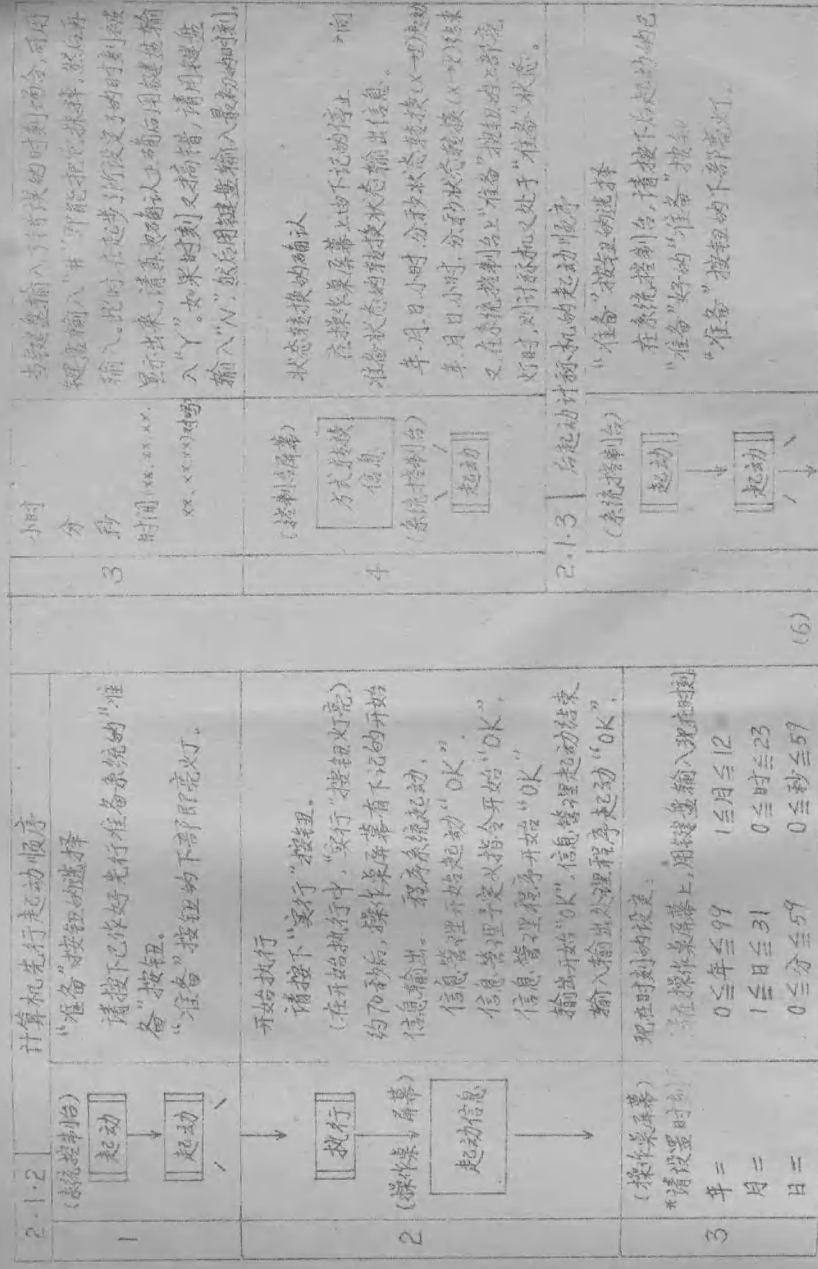 2·1·2 计算机先行起动顺序
1
(系统控制台)
起动
起动
“准备”按钮的选择
请按下已作好先行准备系统的“准
备”按钮。
“准备”按钮的下部即亮灯。
2
执行
(操作桌屏幕)
起动信息
开始执行
请按下“实行”按钮。
(在开始执行中,“实行”按钮灯亮)
约70秒后,操作桌屏幕有下记的开始
信息输出。 程序系统起动,
信息管理开始起动“OK”,
信息管理予定义指令开始“OK”,
信息管理程序开始“OK”
输出开始“OK”,信息管理起动结束
输入输出处理程序起动“OK”,
3
(操作桌屏幕)
*请设置时刻
年=
月=
日=
现在时刻的设定:
在操作桌屏幕上,用键盘输入现在时刻
0≦年≦99 1≦月≦12
1≦日≦31 0≦时≦23
0≦分≦59 0≦秒≦59
(6)
3
小时
分
秒
时间(xx.xx.xx.
xx.xx.xx)对吗
当键盘输入
的时刻场合,可用
键盘输入“#”即能把它抹掉,然后再
输入。此时,在起步了所设定了的时刻被
显示出来,请再次确认正确后用键盘输
入“Y”。如果时刻又搞错,请用键盘
输入“N”,然后用键盘输入最初的时刻。
4
(控制台屏幕)
方式转换
信息
(系统控制台)
起动
状态转换的确认
在操作桌屏幕上由下记的停止
准备状态的转换状态输出信息。
年.月.日.小时.分.秒状态转换(x→z)起动
年.月.日.小时.分.秒状态转换(x→z)结束
又在系统控制台上“准备”按钮的上部亮
灯时,则计标机又处于“准备”状态。
2·1·3 后起动计标机的起动顺序
(系统控制台)
起动
起动
“准备”按钮的选择
在系统控制台,请按下后起动的已
“准备”好的“准备”按钮
“准备”按钮的下部亮灯。